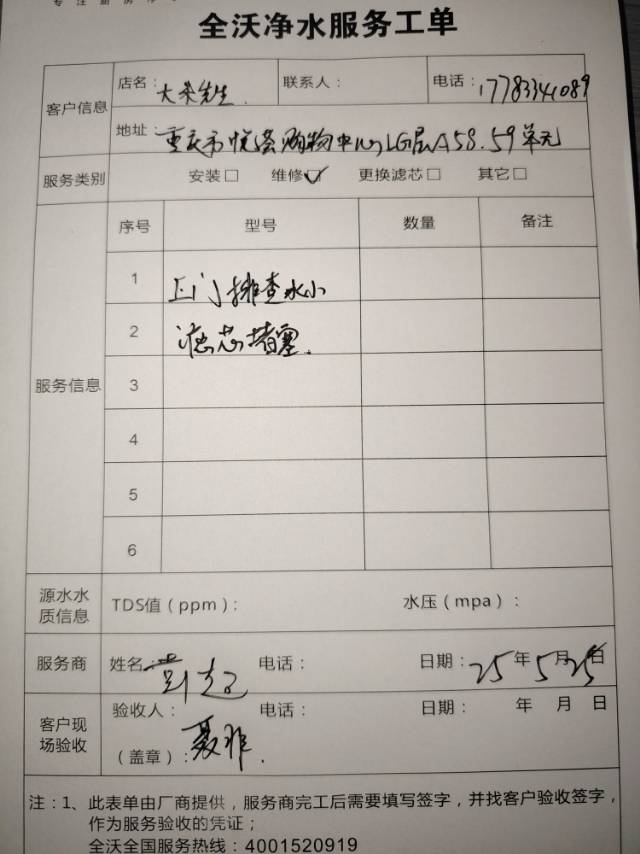 全沃净水服务工单
客户信息
店名：大米先生
联系人：
电话：17783341089
地址：重庆市悦荟购物中心LG层A58.59单元
服务类别
安装□ 维修□✓ 更换滤芯□ 其它□
服务信息
序号 型号 数量 备注
1 上门排查水小
2 滤芯堵塞.
3
4
5
6
源水水质信息
TDS值（ppm）： 水压（mpa）：
服务商
姓名： 电话： 日期：25年5月25日
客户现场验收
验收人： 电话： 日期： 年 月 日
（盖章）：聂非.
注：1、此表单由厂商提供，服务商完工后需要填写签字，并找客户验收签字，
作为服务验收的凭证；
全沃全国服务热线：4001520919